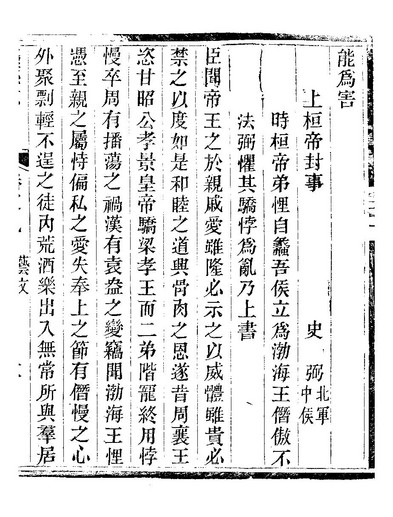 能爲害
上桓帝封事 史弼 北軍中候
時桓帝弟悝自蠡吾侯立爲渤海王僭傲不
法弼懼其驕悖爲亂乃上書
臣聞帝王之於親戚愛雖隆必示之以威體雖貴必
禁之以度如是和睦之道興骨肉之恩遂昔周襄王
恣甘昭公孝景皇帝驕梁孝王而二弟階寵終用悖
慢卒周有播蕩之禍漢有袁盎之變竊聞渤海王悝
憑至親之屬恃偏私之愛失奉上之節有僭慢之心
外聚剽輕不逞之徒內荒酒樂出入無常所與羣居
藝文